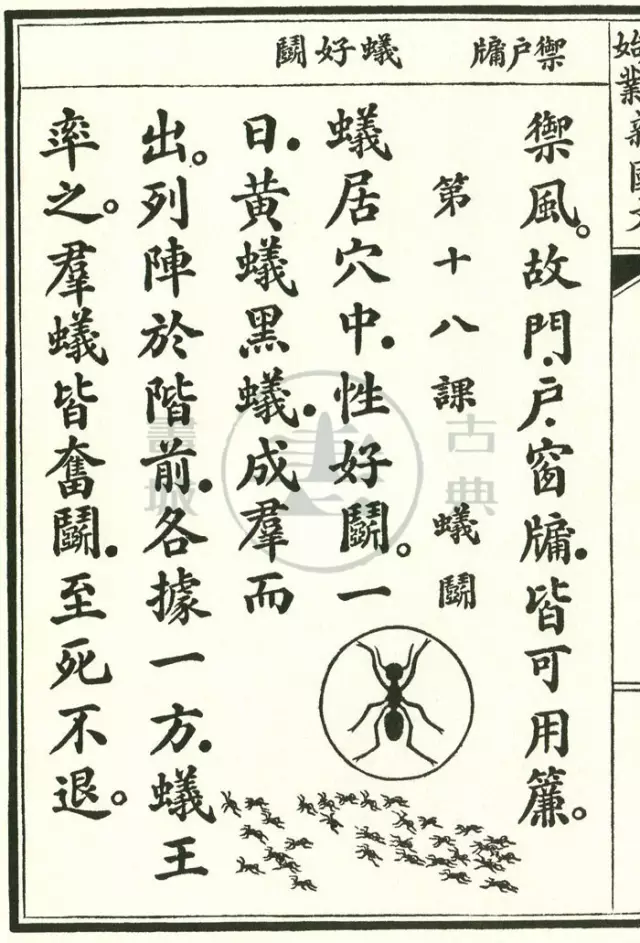 始業新國
禦戶牖
蟻好鬭
禦風。故門·戶·窗牖·皆可用簾。
第十八課 蟻鬭
蟻居穴中·性好鬭。一
日·黃蟻黑蟻·成羣而
出。列陣於階前·各據一方·蟻王
率之。羣蟻皆奮鬭·至死不退。
古典
書城